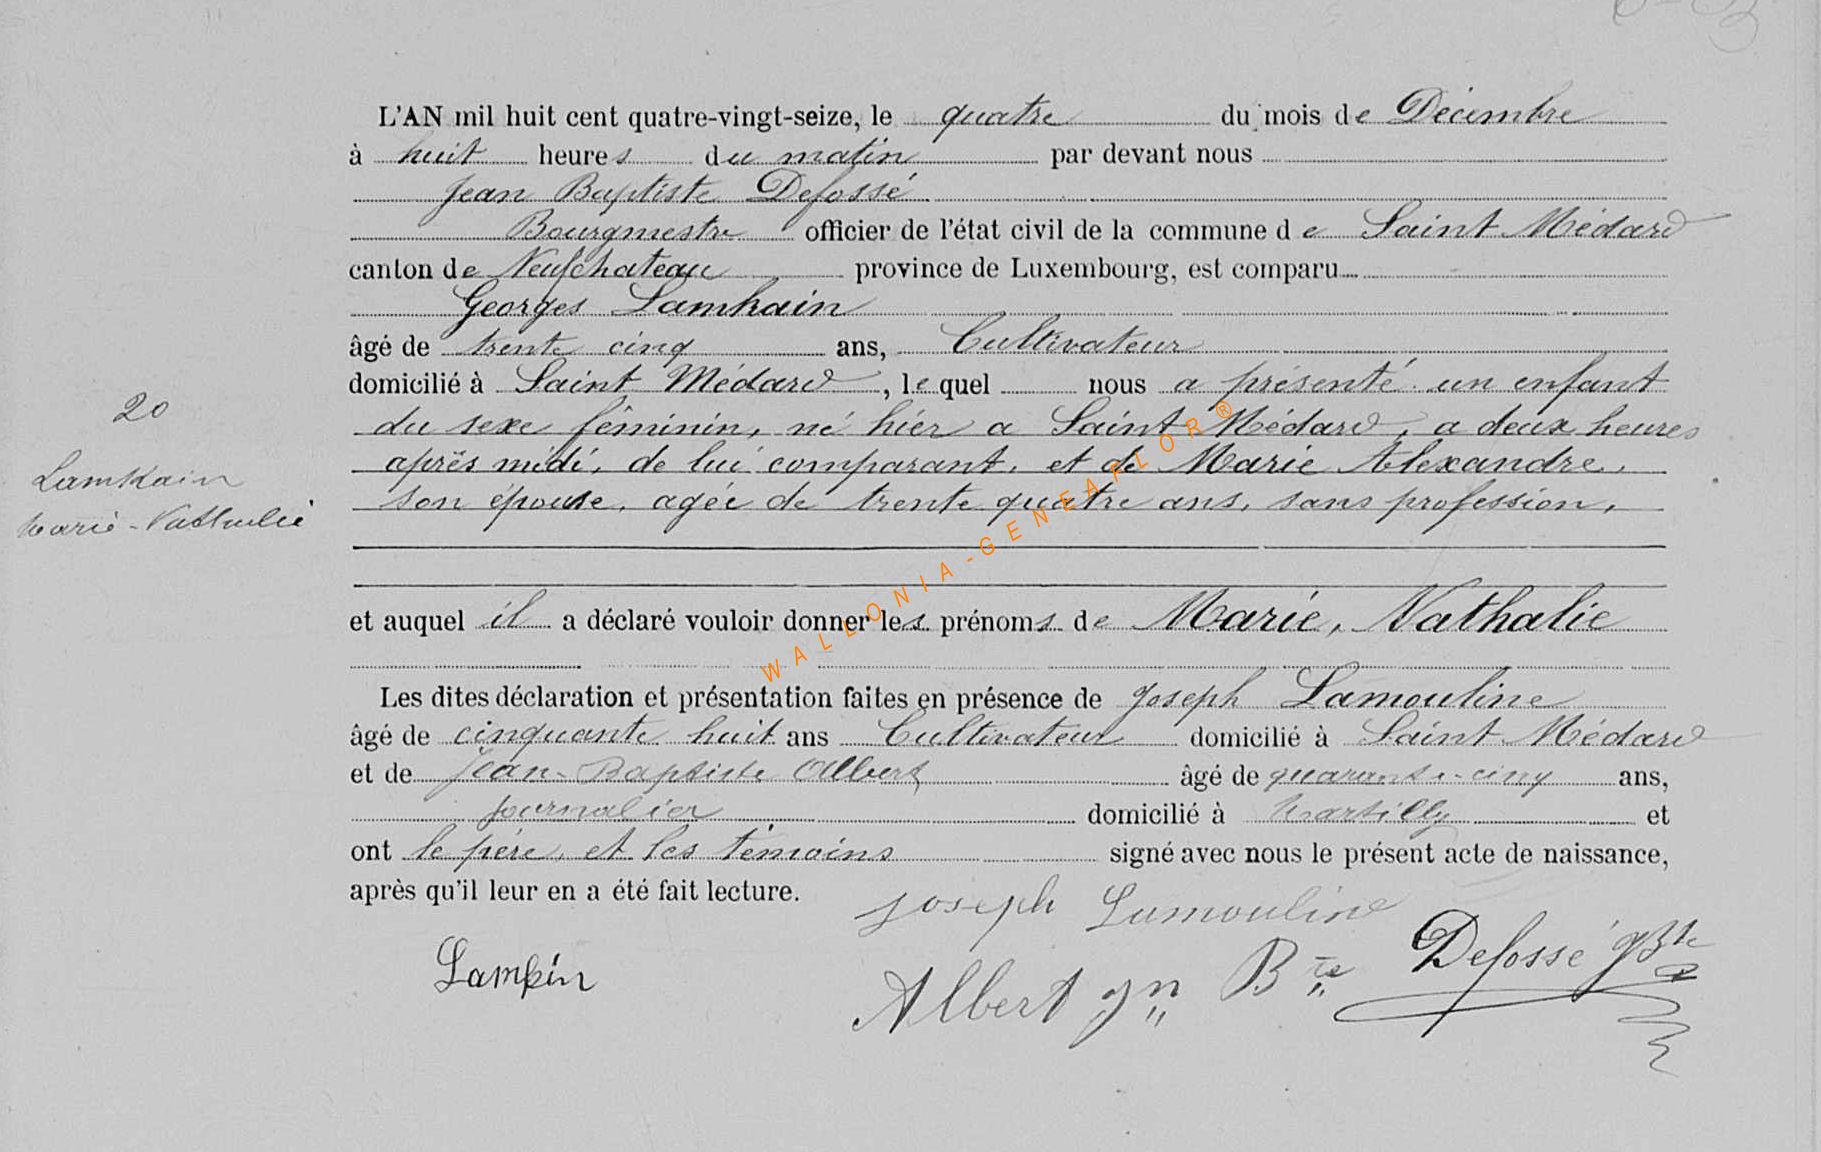 L'AN mil huit cent quatre-vingt-seize, le quatre du mois de Décembre
à huit heures du matin par devant nous
Jean Baptiste Defossé
Bourgmestre officier de l'état civil de la commune de Saint Médard
canton de Neufchateau province de Luxembourg, est comparu
Georges Lamkain
âgé de trente cinq ans, Cultivateur
domicilié à Saint Médard, lequel nous a présenté un enfant
du sexe féminin, né hier a Saint Médard, a deux heures
après midi, de lui comparant, et de Marie Alexandre,
son épouse, agée de trente quatre ans, sans profession,
20
Lamkain
Marie-Nathalie
et auquel il a déclaré vouloir donner les prénoms de Marie, Nathalie
Les dites déclaration et présentation faites en présence de Joseph Lamouline
âgé de cinquante huit ans Cultivateur domicilié à Saint Médard
et de Jean-Baptiste Albert âgé de quarante-cinq ans,
journalier domicilié à Martilly et
ont le père, et les témoins signé avec nous le présent acte de naissance,
après qu'il leur en a été fait lecture.
Joseph Lamouline
Lampin
Albert Jn Bte
Defossé JBte
WALLONIA-GENEAFLOR®